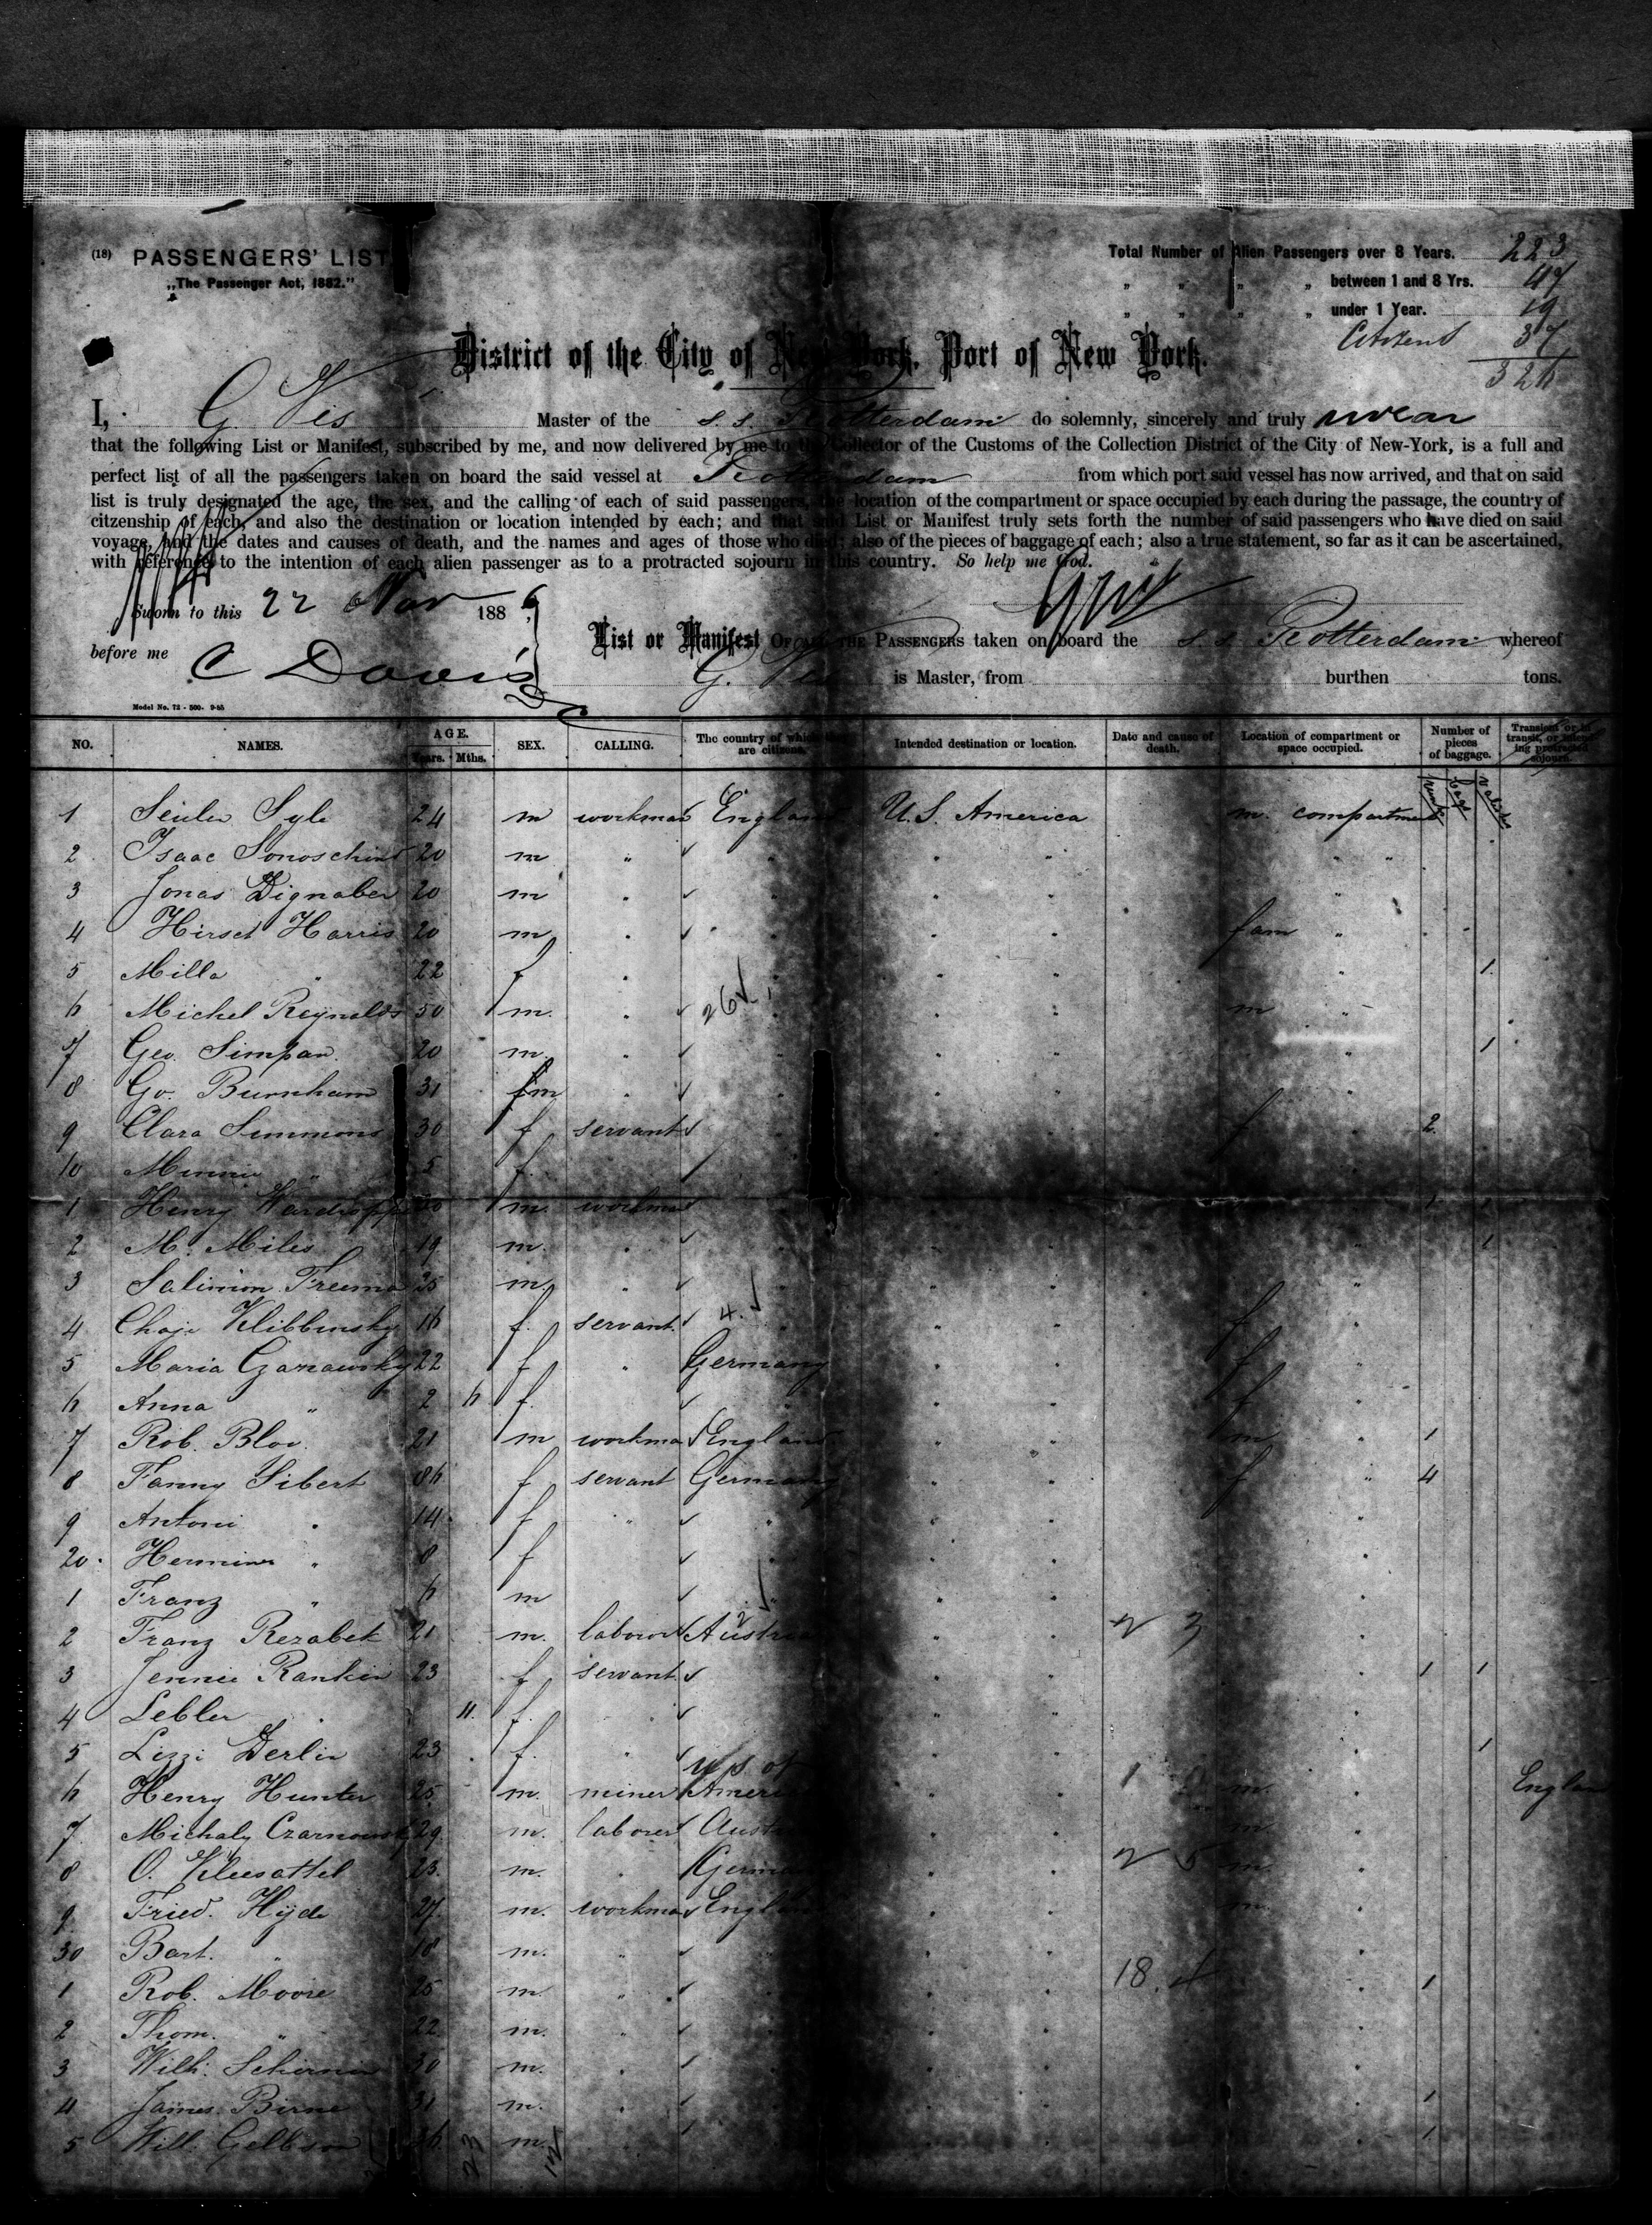 (18) PASSENGERS' LIST
„The Passenger Act, 1882."
Total Number of Alien Passengers over 8 Years. 223
„ „ „ „ between 1 and 8 Yrs. 47
„ „ „ „ under 1 Year. 19
Citizens 37
326
District of the City of New York, Port of New York.
I, G Vis Master of the s.s. Rotterdam do solemnly, sincerely and truly swear
that the following List or Manifest, subscribed by me, and now delivered by me to the Collector of the Customs of the Collection District of the City of New-York, is a full and
perfect list of all the passengers taken on board the said vessel at Rotterdam from which port said vessel has now arrived, and that on said
list is truly designated the age, the sex, and the calling of each of said passengers, the location of the compartment or space occupied by each during the passage, the country of
citzenship of each, and also the destination or location intended by each; and that said List or Manifest truly sets forth the number of said passengers who have died on said
voyage, and the dates and causes of death, and the names and ages of those who died; also of the pieces of baggage of each; also a true statement, so far as it can be ascertained,
with reference to the intention of each alien passenger as to a protracted sojourn in this country. So help me God.
Sworn to this 22 Nov 1886
before me C Davis
List or Manifest OF ALL THE PASSENGERS taken on board the s.s. Rotterdam whereof
G. Vis is Master, from burthen tons.
Model No. 72 - 500. 9-85
NO. NAMES. AGE. Years. Mths. SEX. CALLING. The country of which they are citizens. Intended destination or location. Date and cause of death. Location of compartment or space occupied. Number of pieces of baggage. Transient or in transit, or intending protracted sojourn.
1 Seiler Syle 24 m workman England U.S. America m. compartment
2 Isaac 20 m „
3 Jonas Dignaber 20 m „
4 Hirsch Harris 20 m „ fam „
5 Milla „ 22 f „ 1
6 Michel Reynolds 50 m. „ m „
26
7 Geo. Simpan 20 m. „ 1
8 Go. Burnham 31 m „
9 Clara Simmons 30 f servant f 2
10 Minnie „ 5 f.
1 Henry 20 m. workman 1 1
2 M. Miles 19 m. „ 1
3 Salimon Freeman 25 m. „
4 Chaje Klibbinsky 16 f. servant 4. f
5 Maria Czarnawsky 22 f „ Germany f
6 Anna „ 2 6 f. f
7 Rob. Blov. 21 m workman England m 1
8 Fanny Sibert 36 f servant Germany f 4
9 Antoni „ 14 f „
20. Hermine „ 8 f
1 Franz „ 6 m
2 Franz Rezabek 21 m. laborer Austria 2 3
3 Jennie Rankin 23 f servant 1 1
4 Lebler „ 11. f.
5 Lizzi Derlin 23 f. „ 1
6 Henry Hunter 25 m. miner U.S. of America 1 m. England
7 Michaly Czarnowsky 29 m. laborer Austria m.
8 O. Kleesattel 23. m. „ Germany 2 5 m.
9 Fried. Hyde 27. m. workman England m.
30 Bart. „ 18 m. „
1 Rob. Moore 25 m. „ 18. 4 1
2 Thom. „ 22 m. „
3 Wilh. 30 m. „
4 James Birne 31 m. „ 1
5 Will. Gelbson 36 m. 1
23